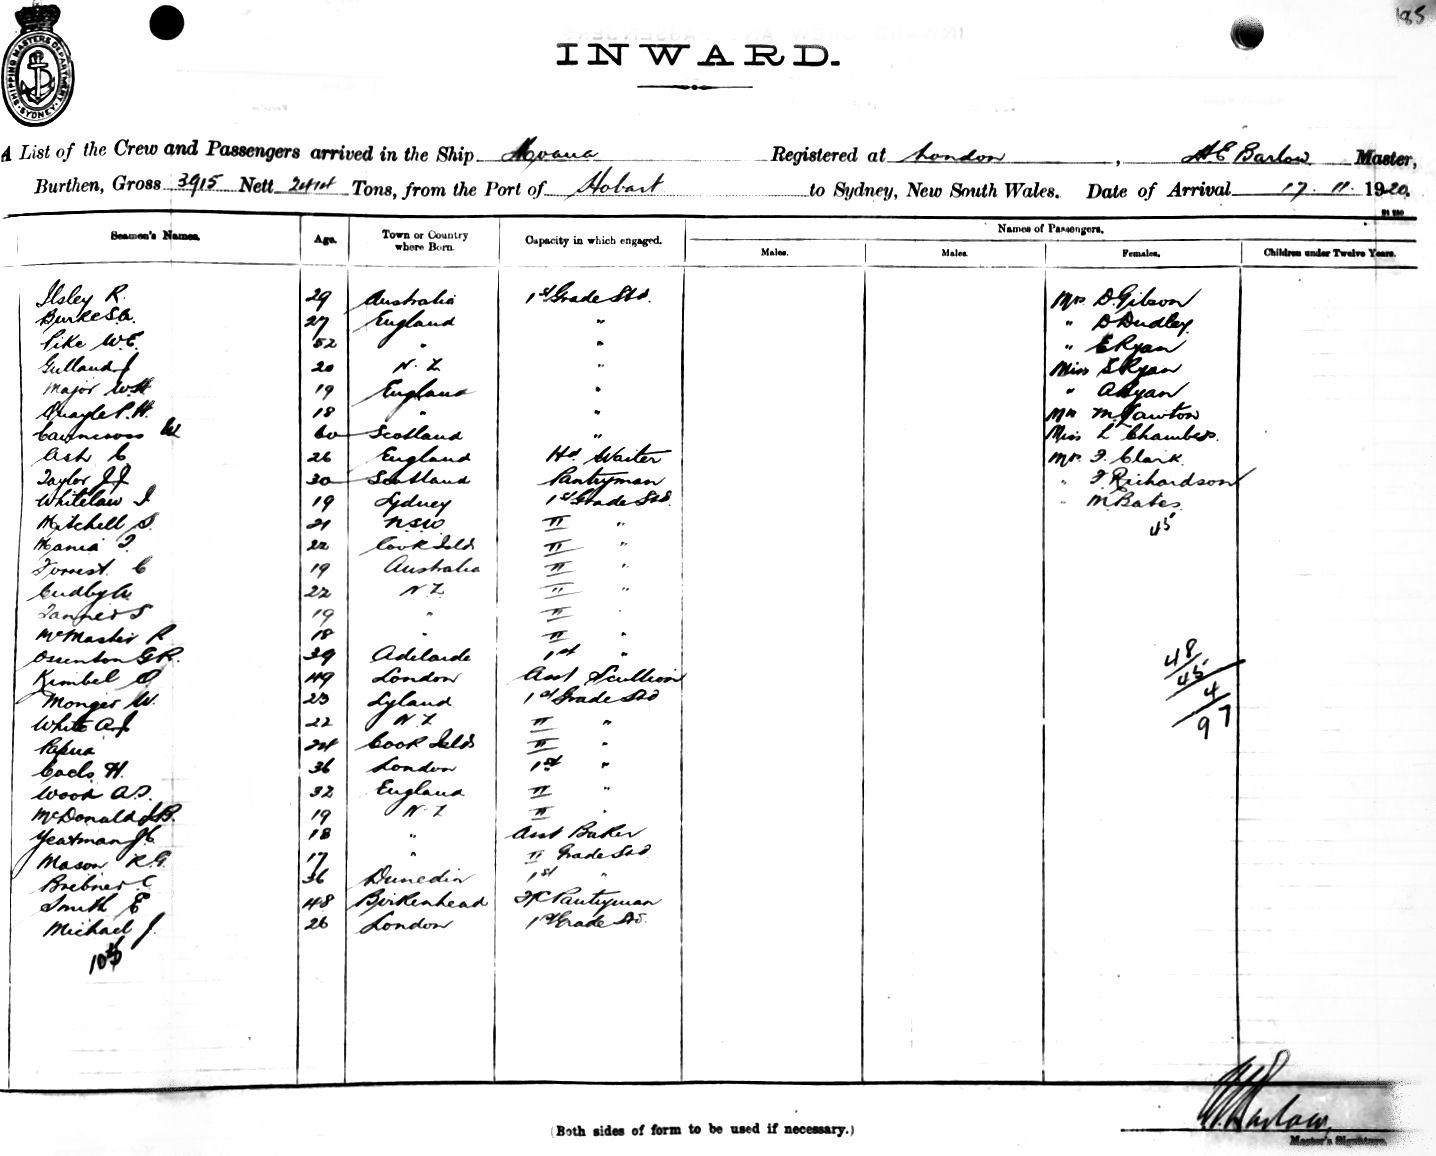 185
SHIPPING MASTERS DEPARTMENT SYDNEY
INWARD.
A List of the Crew and Passengers arrived in the Ship Moana Registered at London, H E Barlow Master,
Burthen, Gross 3915 Nett 2414 Tons, from the Port of Hobart to Sydney, New South Wales. Date of Arrival 17. 11. 1920.
Names of Passengers.
Seamen's Names. Age. Town or Country where Born. Capacity in which engaged. Males. Males. Females. Children under Twelve Years.
Ilsley R. 29 Australia 1st Grade Std. Mrs D. Gibson
Burke 27 England " " D Dudley
Pike W.E. 52 " " " E Ryan
Gulland J 20 N. Z " Miss S Ryan
Major W.H 19 England " " A Ryan
Quayle P. H. 18 " " Mrs M Lawton
Cairncross W 60 Scotland " Miss L Chambers
Ash C 26 England Hd Waiter Mr. F. Clark.
Taylor J.J 30 Scotland Pantryman " F Richardson
Whitelaw I 19 Sydney 1st Grade Std " M. Bates.
Mitchell S. 21 N.S.W II " 45
Mania T. 22 Cook Islds II "
Forrest C 19 Australia II "
Cudby 22 N Z II "
Tanner S 19 " II "
McMaster R 18 " II "
G.R. 39 Adelaide 1st " 48
Kimbel O 49 London Asst Scullion 45
Monger W. 23 Lyland 1st Grade Std 4
White A.J 22 N Z II " 97
Papua 24 Cook Islds II "
H. 36 London 1st "
Wood A.S. 32 England II "
McDonald J.B. 19 N. Z II "
Yeatman J C 18 " Asst Baker
Mason R.G. 17 " II Grade Std
Brebner C 36 Dunedin 1st "
Smith E 48 Birkenhead Pantryman
Michael J. 26 London 1st Grade Std.
(Both sides of form to be used if necessary.)
H E Barlow,
Master's Signature.